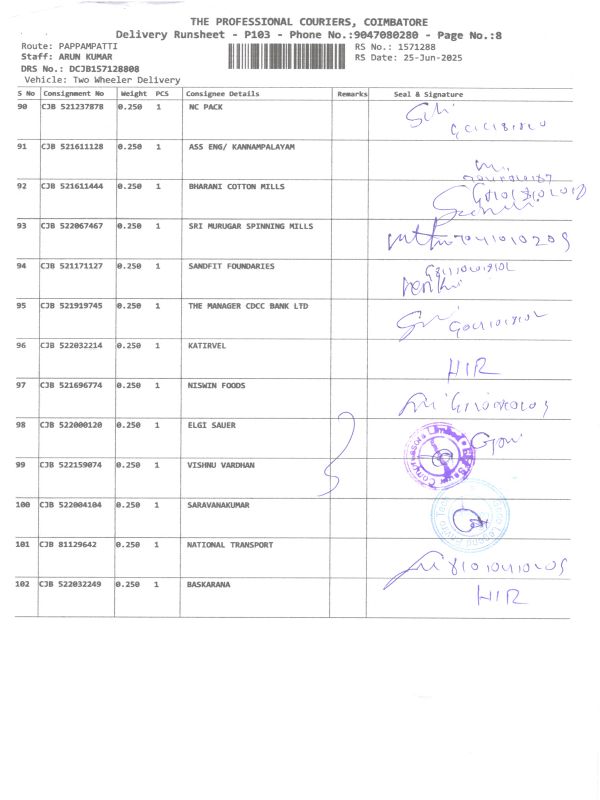 THE PROFESSIONAL COURIERS, COIMBATORE
Delivery Runsheet - P103 - Phone No.:9047080280 - Page No.:8
Route: PAPPAMPATTI
RS No.: 1571288
Staff: ARUN KUMAR
RS Date: 25-Jun-2025
DRS No.: DCJB157128808
Vehicle: Two Wheeler Delivery
S No Consignment No Weight PCS Consignee Details Remarks Seal & Signature
90 CJB 521237878 0.250 1 NC PACK
91 CJB 521611128 0.250 1 ASS ENG/ KANNAMPALAYAM
92 CJB 521611444 0.250 1 BHARANI COTTON MILLS
93 CJB 522067467 0.250 1 SRI MURUGAR SPINNING MILLS
94 CJB 521171127 0.250 1 SANDFIT FOUNDARIES
95 CJB 521919745 0.250 1 THE MANAGER CDCC BANK LTD
96 CJB 522032214 0.250 1 KATIRVEL
HIR
97 CJB 521696774 0.250 1 NISWIN FOODS
98 CJB 522000120 0.250 1 ELGI SAUER
99 CJB 522159074 0.250 1 VISHNU VARDHAN
100 CJB 522004104 0.250 1 SARAVANAKUMAR
101 CJB 81129642 0.250 1 NATIONAL TRANSPORT
102 CJB 522032249 0.250 1 BASKARANA
HIR